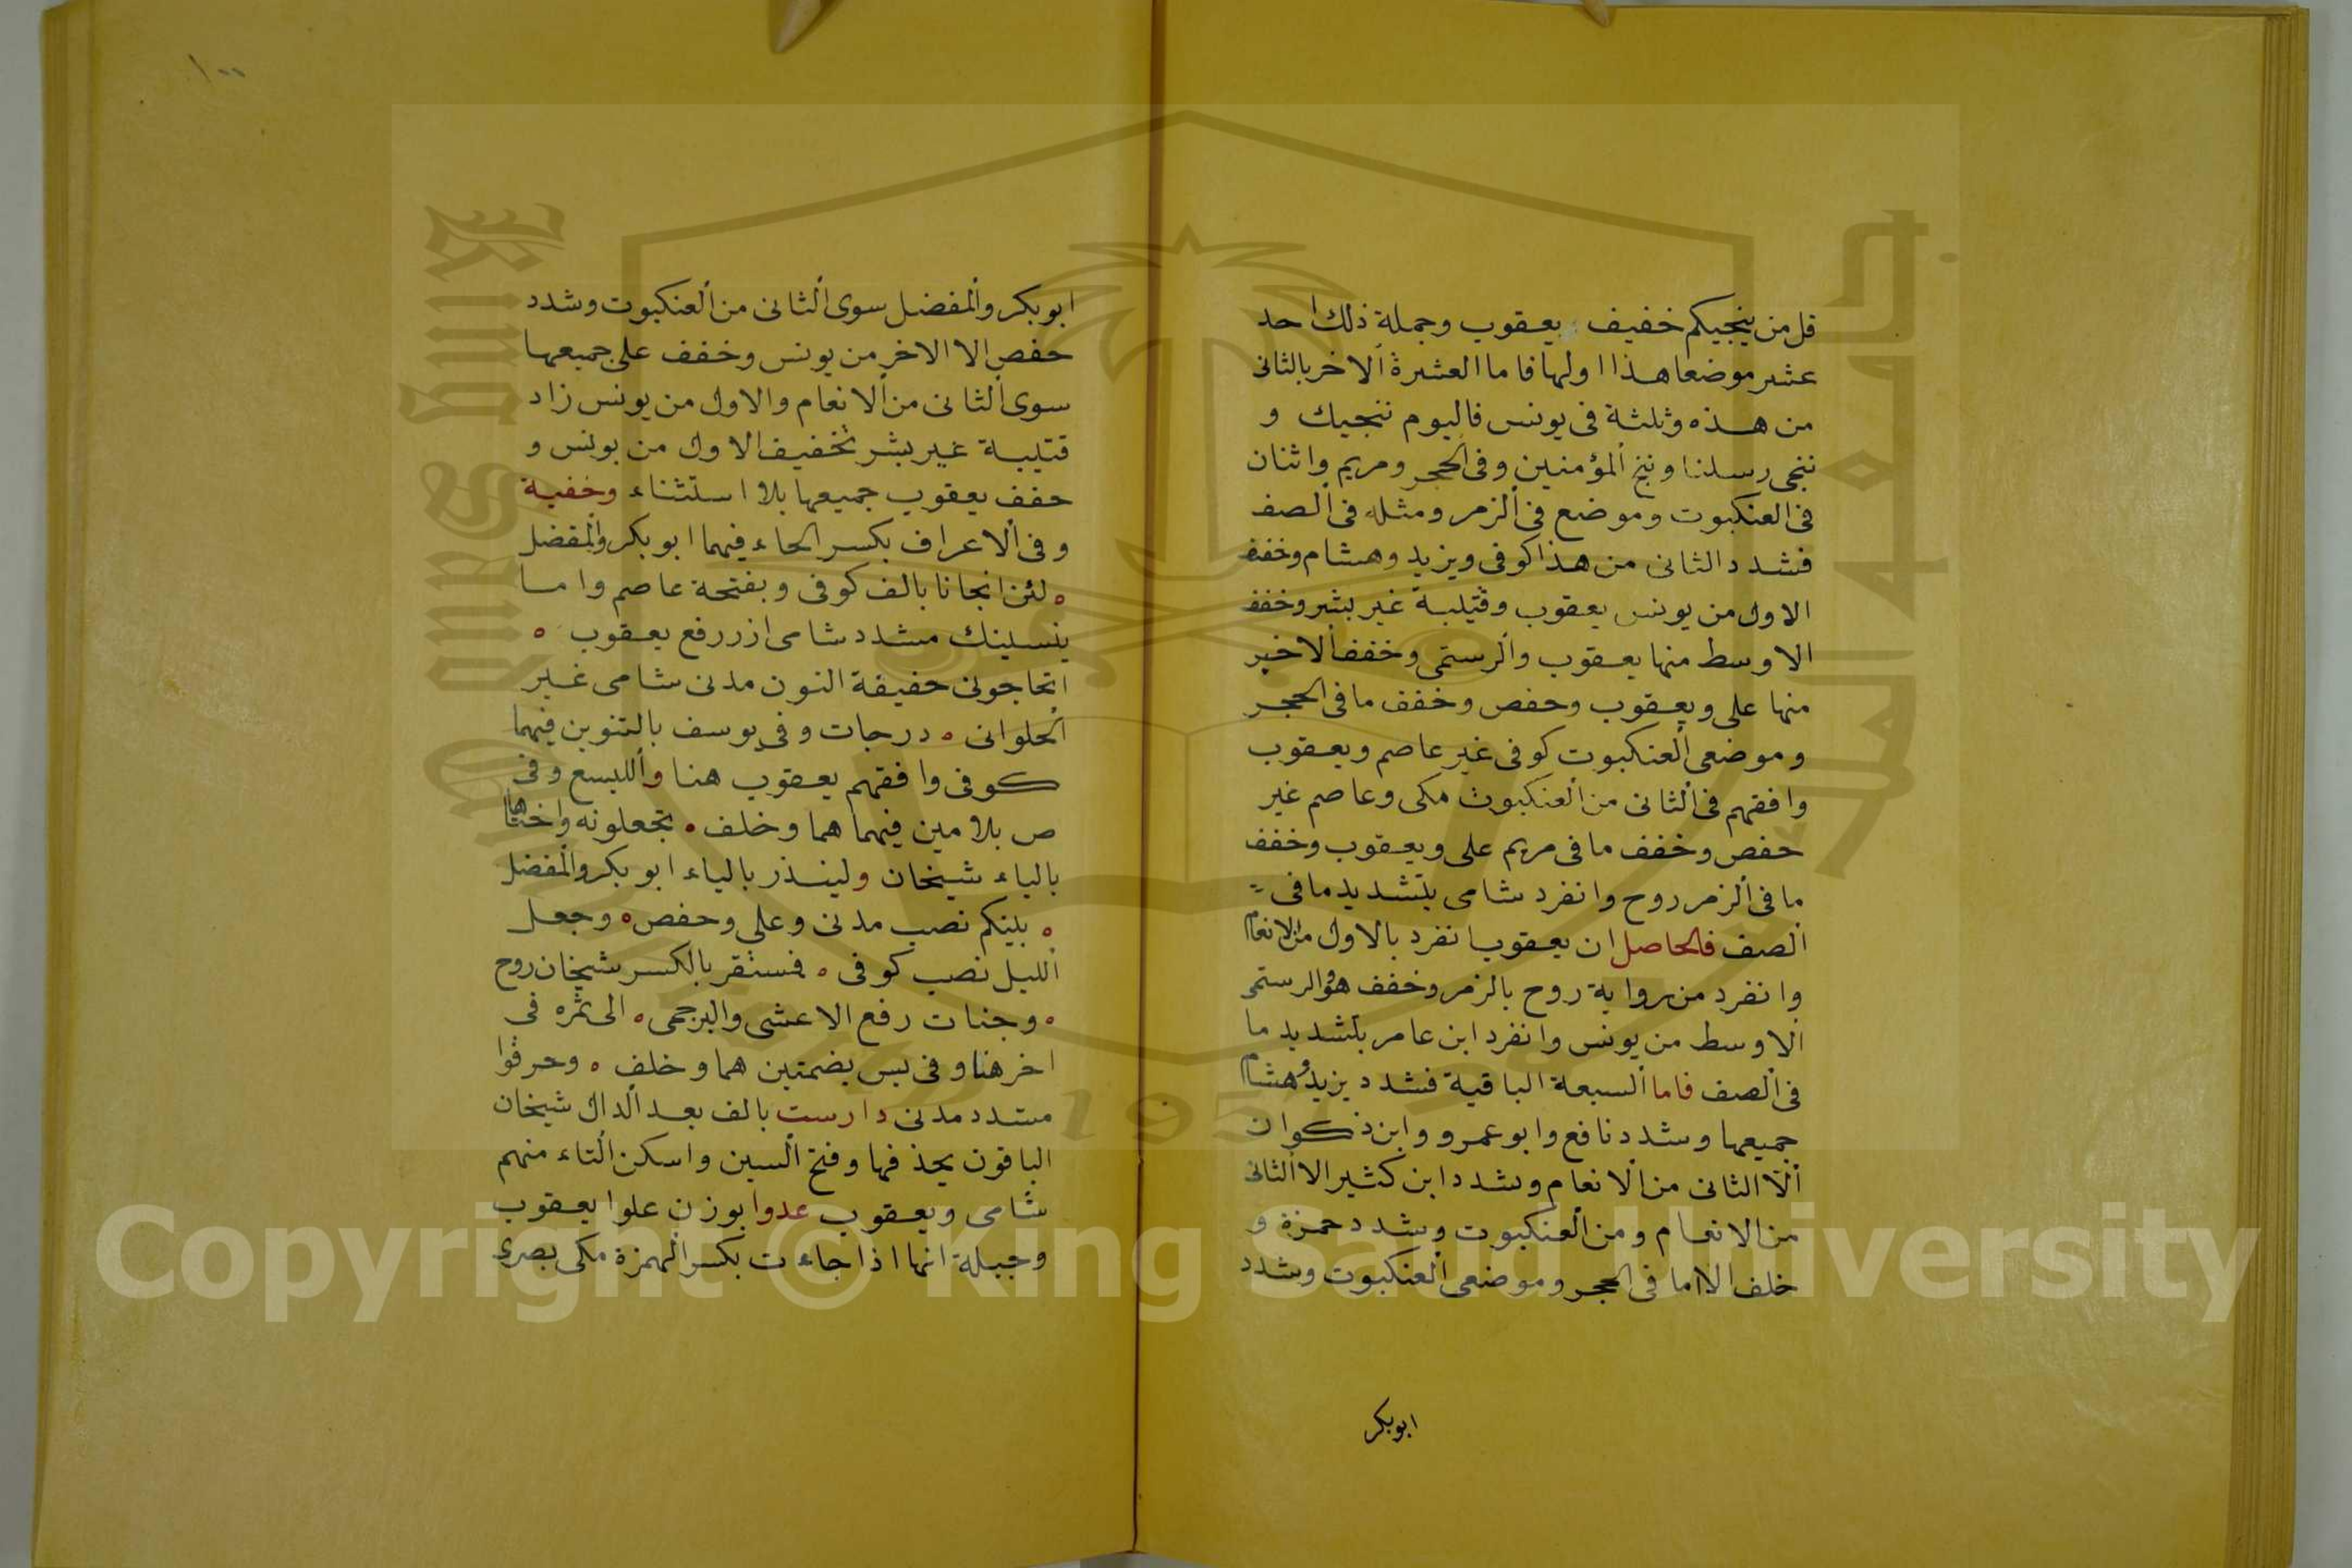 قل من ينجيكم خفيف يعقوب وجملة ذلك احد
عشر موضعا هذا اولها فاما العشرة الاخر بالثانى
من هذه وثلثة فى يونس فاليوم ننجيك و
ننجى رسلنا وننج المؤمنين وفى الحجر ومريم واثنان
فى العنكبوت وموضع فى الزمر ومثله فى الصف
فشدد الثانى من هذا كوفى ويزيد وهشام وخفف
الاول من يونس يعقوب وقتيبة غير بشر وخفف
الاوسط منها يعقوب والرستمى وخفف الاخير
منها على ويعقوب وحفص وخفف ما فى الحجر
وموضعى العنكبوت كوفى غير عاصم ويعقوب
وافقهم فى الثانى من العنكبوت مكى وعاصم غير
حفص وخفف ما فى مريم على ويعقوب وخفف
ما فى الزمر روح وانفرد شامى بتشديد ما فى
الصف فالحاصل ان يعقوب انفرد بالاول من الانعام
وانفرد من رواية روح بالزمر وخفف هو والرستمى
الاوسط من يونس وانفرد ابن عامر بتشديد ما
فى الصف فاما السبعة الباقية فشدد يزيد وهشام
جميعها وشدد نافع وابو عمرو وابن ذكوان
الا الثانى من الانعام وشدد ابن كثير الا الثانى
من الانعام ومن العنكبوت وشدد حمزة و
خلف الا ما فى الحجر وموضعى العنكبوت وشدد
ابوبكر
١٠٠
ابوبكر والمفضل سوى الثانى من العنكبوت وشدد
حفص الا الاخر من يونس وخفف على جميعها
سوى الثانى من الانعام والاول من يونس زاد
قتيبة غير بشر تخفيف الاول من يونس و
خفف يعقوب جميعها بلا استثناء وخفية
وفى الاعراف بكسر الخاء فيهما ابوبكر والمفضل
ه لئن انجانا بالف كوفى وبفتحة عاصم واما
ينسينك مشدد شامى ازر رفع يعقوب ه
اتحاجونى خفيفة النون مدنى شامى غير
الحلوانى ه درجات وفى يوسف بالتنوين فيهما
كوفى وافقهم يعقوب هنا والليسع وفى
ص بلامين فيهما هما وخلف ه تجعلونه واختاها
بالياء شيخان ولينذر بالياء ابوبكر والمفضل
ه بينكم نصب مدنى وعلى وحفص ه وجعل
الليل نصب كوفى ه فمستقر بالكسر شيخان روح
ه وجنات رفع الاعشى والبرجمى ه الى ثمره فى
اخر هنا وفى يس بضمتين هما وخلف ه وخرقوا
مشدد مدنى دارست بالف بعد الدال شيخان
الباقون بحذفها وفتح السين واسكن التاء منهم
شامى ويعقوب عدوا بوزن علوا يعقوب
وجبلة انها اذا جاءت بكسر الهمزة مكى بصرى
Copyright © King Saud University
1957